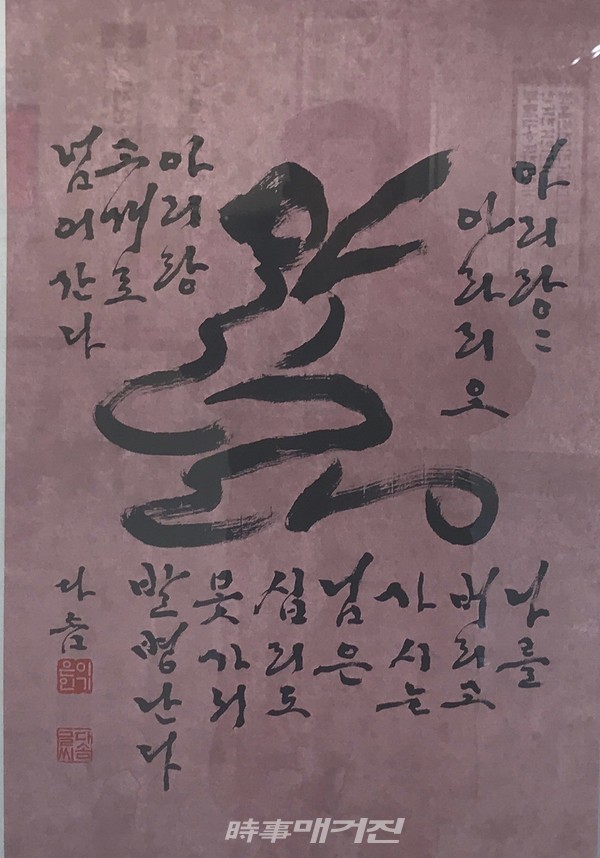 아리랑〃
아라리오
아리랑
고개로
넘어간다
나를
버리고
가시는
님은
십리도
못가서
발병난다
다솜
時事매거진